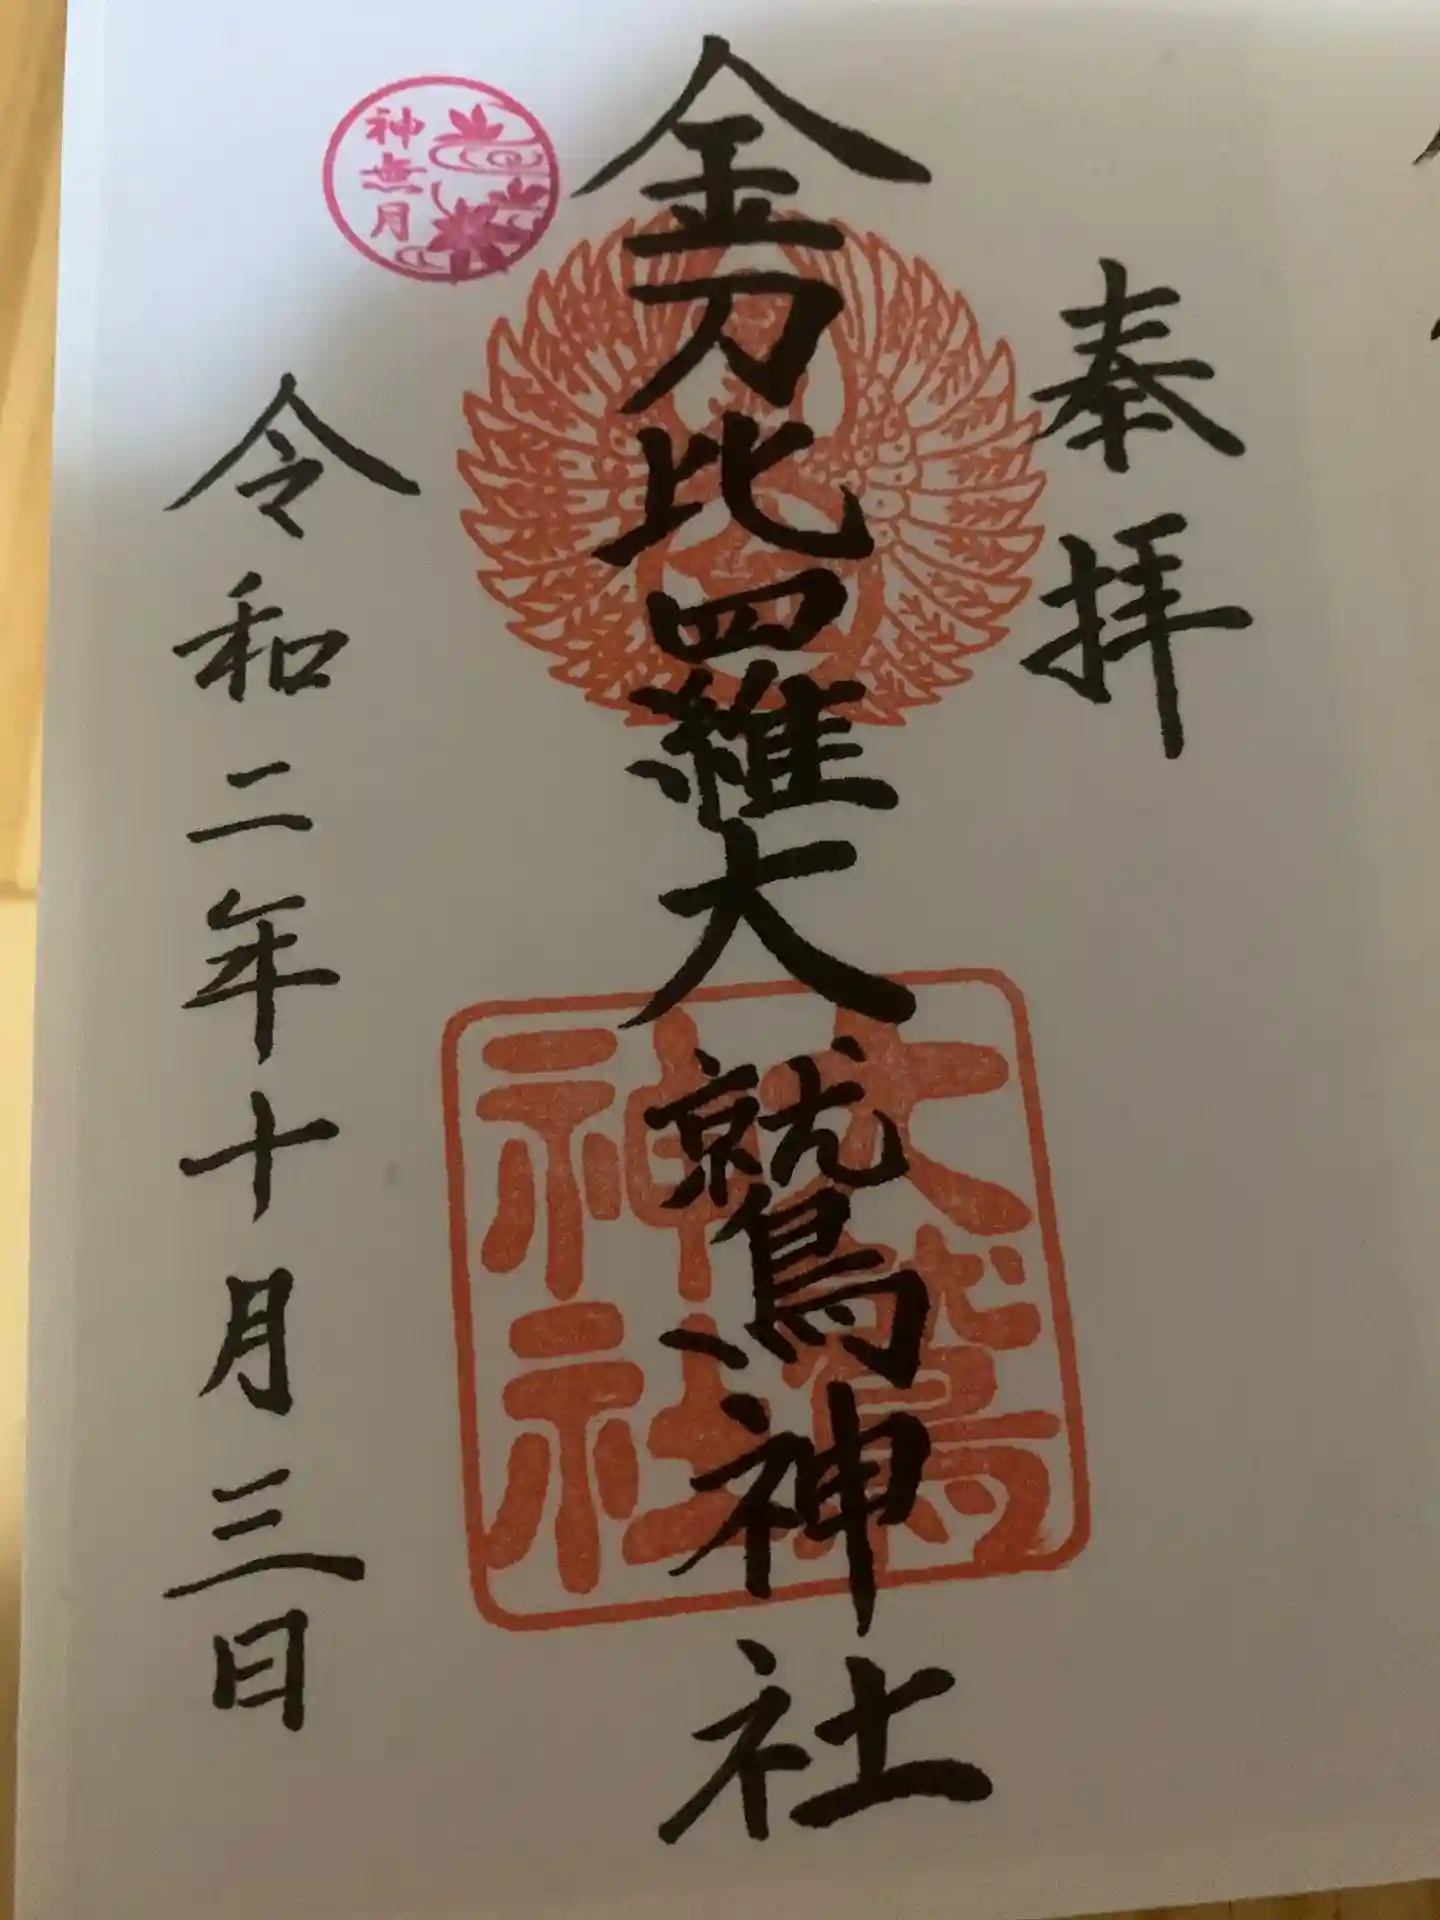 奉拝
金刀比羅大鷲神社
大鷲
神社
神無月
令和二年十月三日